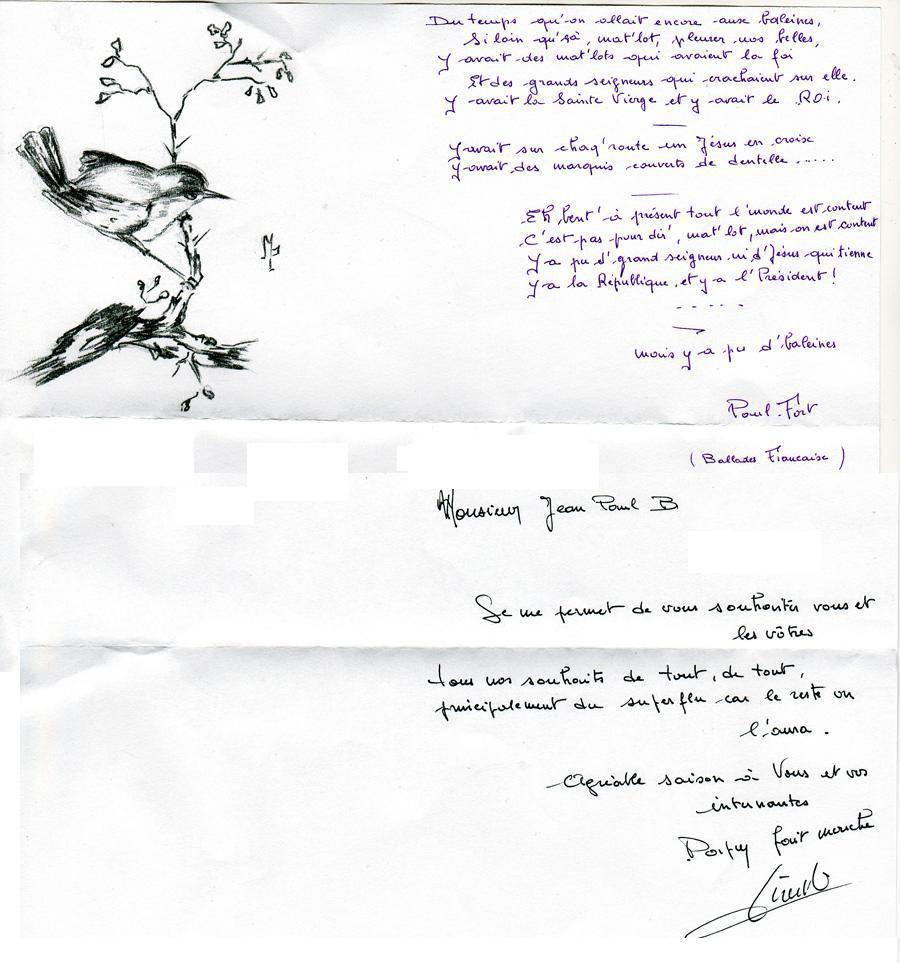 Du temps qu'on allait encore aux baleines,
Si loin qu'çà, mat'lot, pleurer nos belles,
Y avait des mat'lots qui avaient la foi
Et des grands seigneurs qui crachaient sur elle.
Y avait la Sainte Vierge et y avait le Roi.
Y avait sur chaq'route un Jésus en croix
Y avait des marquis couverts de dentelle .....
Eh bent' à présent tout l'monde est content
C'est pas pour dir', mat'lot, mais on est content
Y a pu d'grand seigneur ni d'Jésus qui tienne
Y a la République, et y a l'Président !
mais y a pu d'baleines
Paul-Fort
(Ballades Francaise)
Monsieur Jean Paul B
Je me permet de vous souhaiter vous et
les vôtres
tous nos souhaits de tout, de tout,
principalement du superflu car le reste on
l'aura.
Agréable saison à Vous et vos
intervenantes
fait mouche